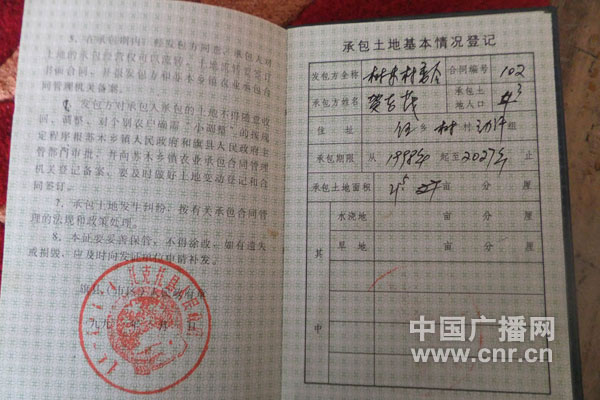 5. 在承包期内, 经发包方同意, 承包人对
土地的承包经营权可以流转, 土地流转要签订
书面合同, 并报发包方和苏木乡镇农业承包合
同管理机关备案。
6. 发包方对承包人承包的土地不得随意收
回、调整, 对个别农户确需“小调整”的按规
定程序报苏木乡镇人民政府和旗县人民政府主
管部门审批, 并向苏木乡镇农业承包合同管理
机关登记备案, 要及时做好土地变动登记和合
同签订。
7. 承包土地发生纠纷, 按有关承包合同管
理的法规和政策处理。
8. 本证要妥善保管, 不得涂改, 如有遗失
或损毁, 应及时向发证单位申请补发。
承包土地基本情况登记
发包方全称 树木村委会 合同编号 102
承包方姓名 贺 承包土地人口 3
住 址 乡 树 村 组
承包期限 从 1998年 起至 2027年 止
承包土地面积 亩 分 厘
其中
水浇地 亩 分 厘
旱 地 亩 分 厘
中国广播网
www.cnr.cn